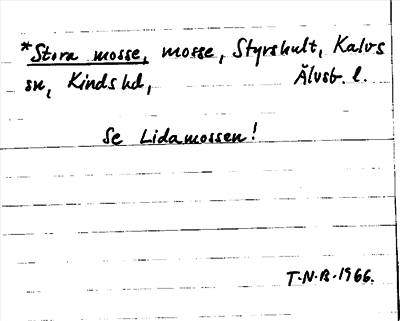 *Stora mosse, mosse, Styrshult, Kalvs
sn, Kinds hd, Älvsb. l.
Se Lidamossen!
T.N.B. 1966.